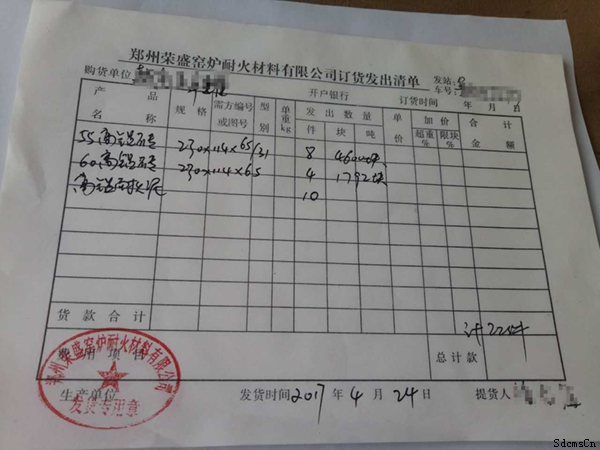 郑州荣盛窑炉耐火材料有限公司订货发出清单
购货单位 发站:
车号:
产品名称 规格 需方编号或图号 型别 单重kg 开户银行 订货时间 年 月 日
发出数量 件 块 吨 单价 加价 超重% 限块% 合计金额
55高铝砖 230×114×65/31 8
60高铝砖 230×114×65 4 1792块
高铝耐火泥 10
货款合计 计22件
费用项目 总计款
郑州荣盛窑炉耐火材料有限公司
发货专用章
生产单位 发货时间 2017年4月24日 提货人
SdcmsCn